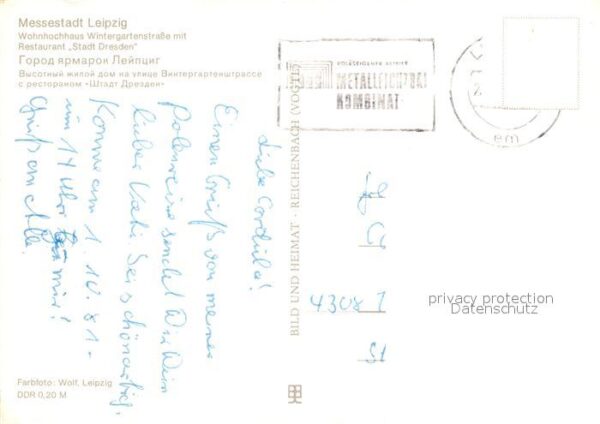 Messestadt Leipzig
Wohnhochhaus Wintergartenstraße mit
Restaurant „Stadt Dresden"
Город ярмарок Лейпциг
Высотный жилой дом на улице Винтергартенштрассе
с рестораном «Штадт Дрезден»
VOLKSEIGENER BETRIEB
METALLEICHTBAU
KOMBINAT
em
Liebe Cordula!
Einen Gruß von meiner
Polenreise sendet Dir Dein
lieber Vati. Sei schön artig.
Komme am 1.10.81 -
um 14 Uhr
mir!
Gruß an Alle.
BILD UND HEIMAT · REICHENBACH (VOGTL)
4308 1
privacy protection
Datenschutz
Farbfoto: Wolf, Leipzig
DDR 0,20 M